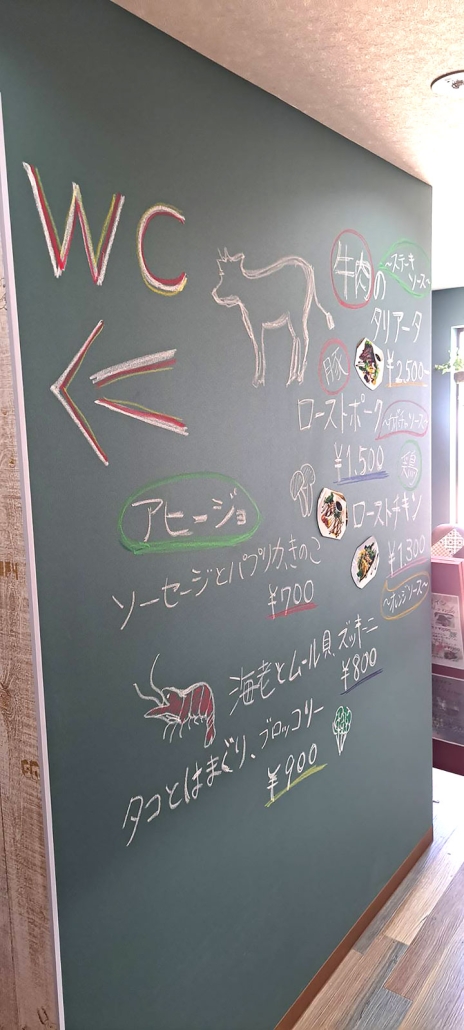 WC
牛肉の
~ステーキ
ソース~
タリアータ
¥2,500-
豚
ローストポーク
¥1,500
鶏
ローストチキン
¥1300
~オレンジソース~
アヒージョ
ソーセージとパプリカ、きのこ
¥700
海老とムール貝、ズッキーニ
¥800
タコとはまぐり、ブロッコリー
¥900